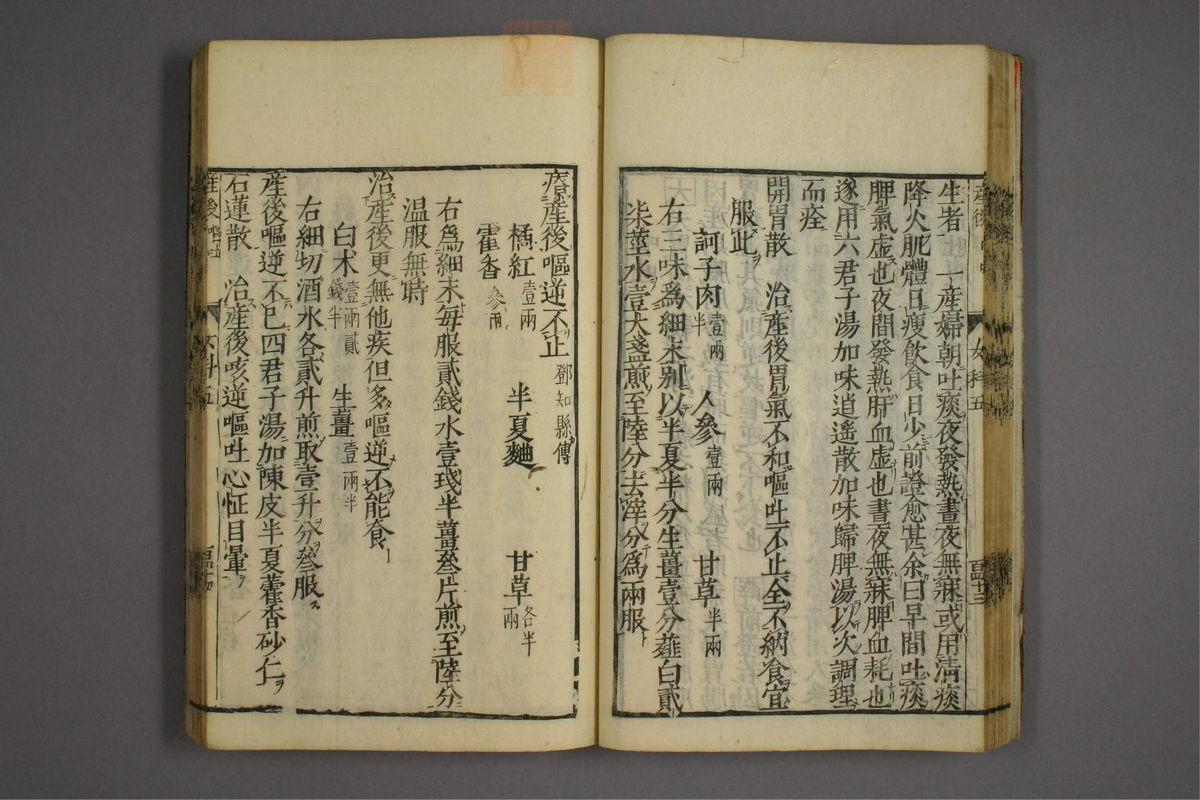 生者　一產婦朝吐痰夜發熱晝夜無寐或用淸痰
降火肌體日瘦飮食日少前證愈甚余曰早間吐痰
脾氣虛也夜間發熱肝血虛也晝夜無寐脾血耗也
遂用六君子湯加味逍遙散加味歸脾湯以次調理
而痊
開胃散　治產後胃氣不和嘔吐不止全不納食宜
服此
訶子肉壹兩半　人參壹兩　甘草半兩
右三味爲細末別以半夏半分生薑壹分薤白貳
柒莖水壹大盞煎至陸分去滓分爲兩服
產後
女科五
產後嘔逆不止鄧知縣傳
橘紅壹兩　半夏麯　甘草各半兩
藿香參兩
右爲細末每服貳錢水壹琖半薑叄片煎至陸分
温服無時
治產後更無他疾但多嘔逆不能食
白术壹兩貳錢半　生薑壹兩半
右細切酒水各貳升煎取壹升分叄服
產後嘔逆不已四君子湯加陳皮半夏藿香砂仁
石蓮散　治產後咳逆嘔吐心怔目暈
產後
女科五